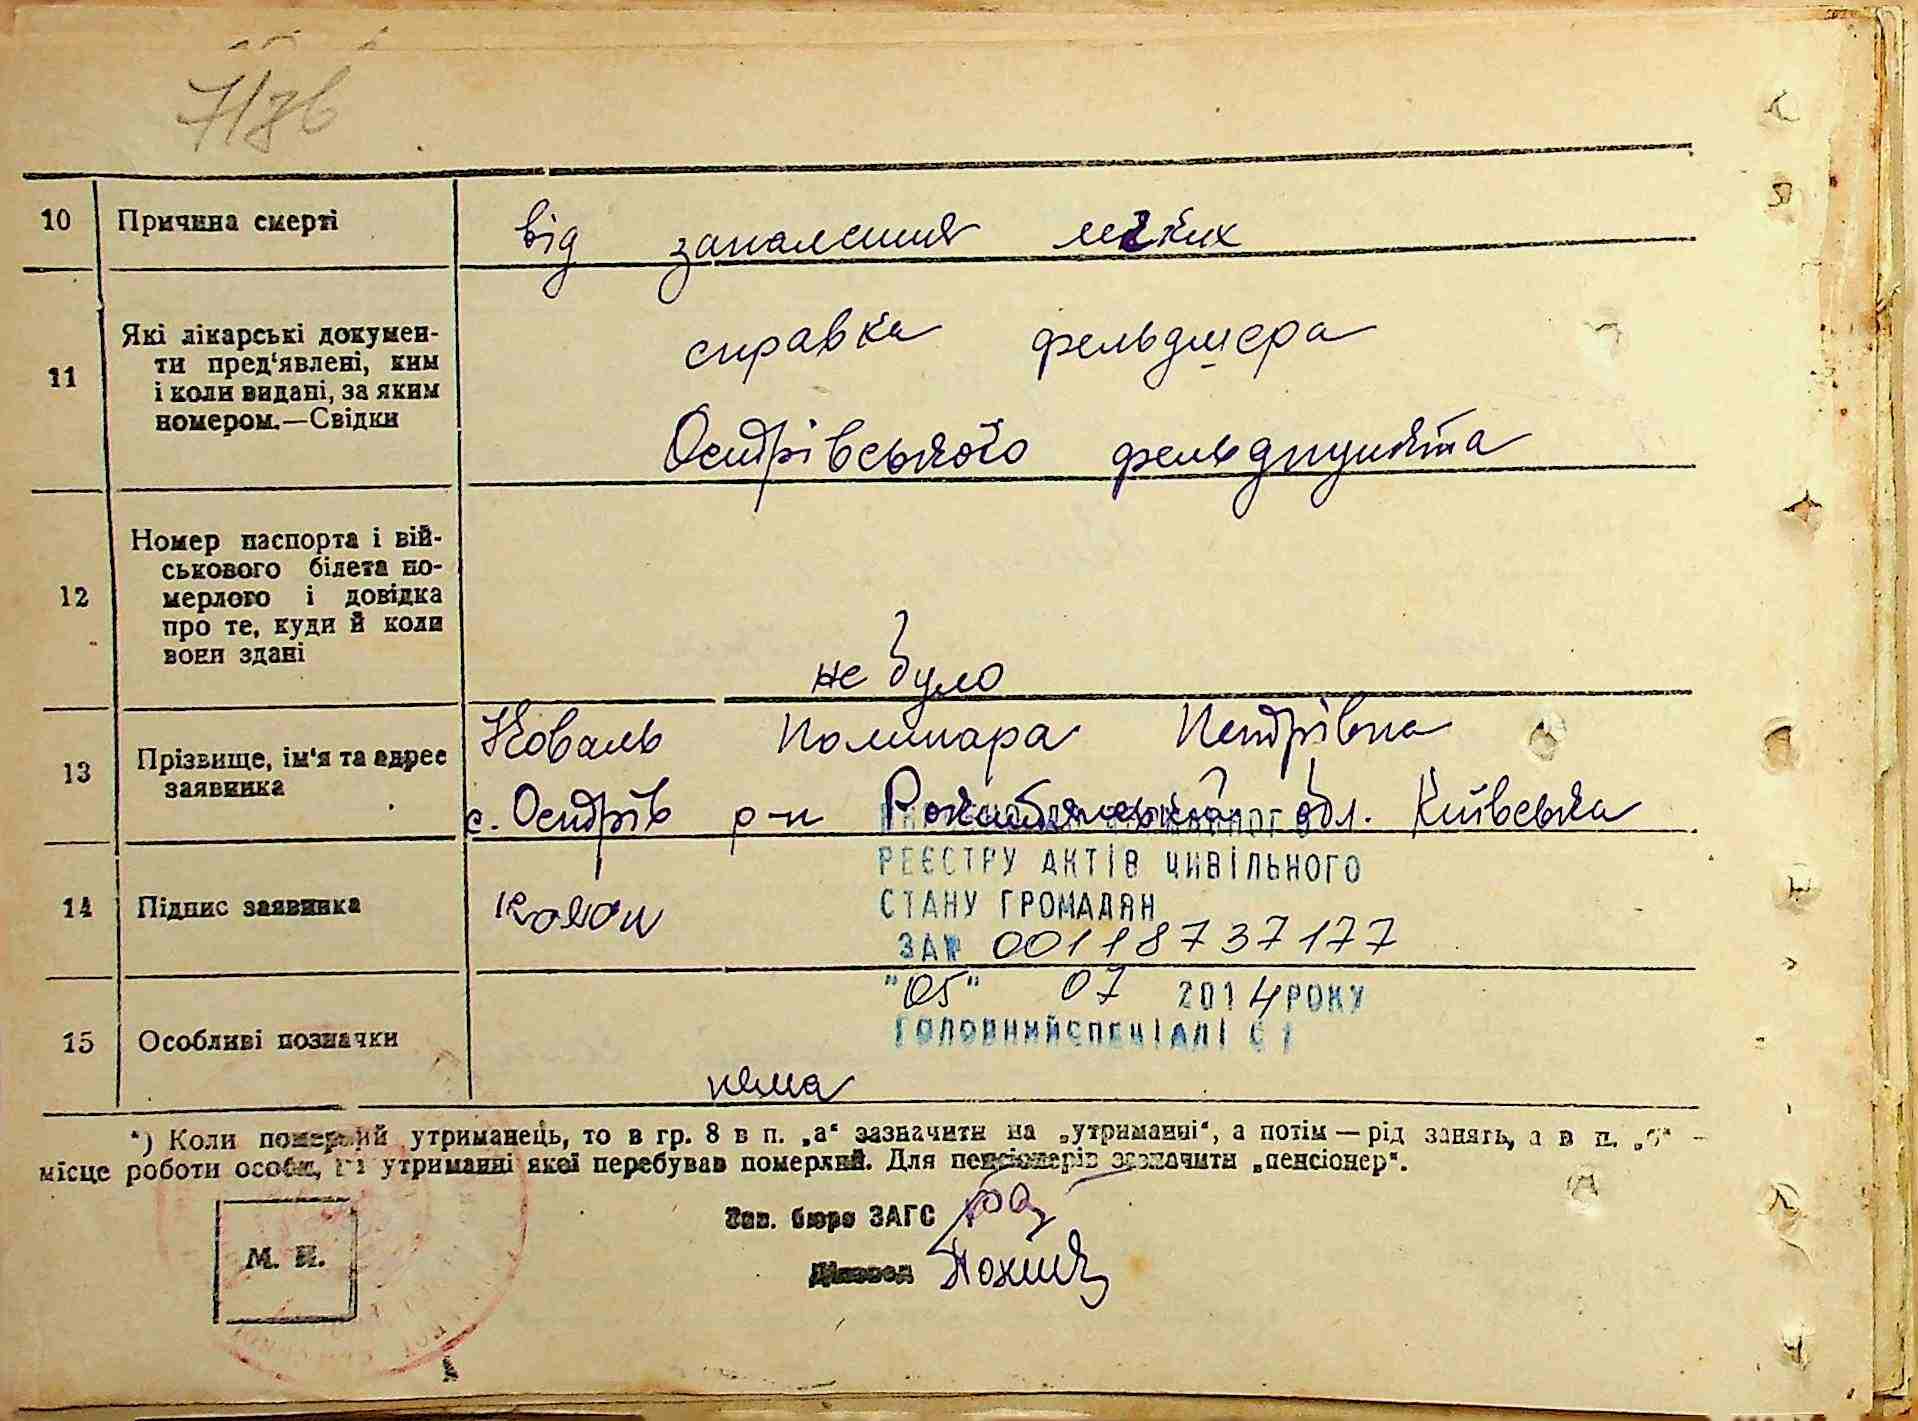 10 Причина смерті від запалення легких
11 Які лікарські докумен-
ти пред'явлені, ким
і коли видані, за яким
номером.—Свідки
справка фельдшера
Острівського фельдпункта
12 Номер паспорта і вій-
ськового білета по-
мерлого і довідка
про те, куди й коли
вони здані
не було
13 Прізвище, ім'я та адрес
заявника
Коваль Полинара Петрівна
с. Острів р-н Рокитнянський обл. Київська
РЕЄСТРУ АКТІВ ЦИВІЛЬНОГО
14 Підпис заявника
СТАНУ ГРОМАДЯН
ЗА № 00118737177
"05" 07 2014 РОКУ
15 Особливі позначки
ГОЛОВНИЙ СПЕЦІАЛІСТ
нема
*) Коли померлий утриманець, то в гр. 8 в п. „а“ зазначити на „утриманні“, а потім — рід занять, а в п. „б“ —
місце роботи особи, на утриманні якої перебував померлий. Для пенсіонерів зазначити „пенсіонер“.
Зав. бюро ЗАГС
М. П.
Діловод